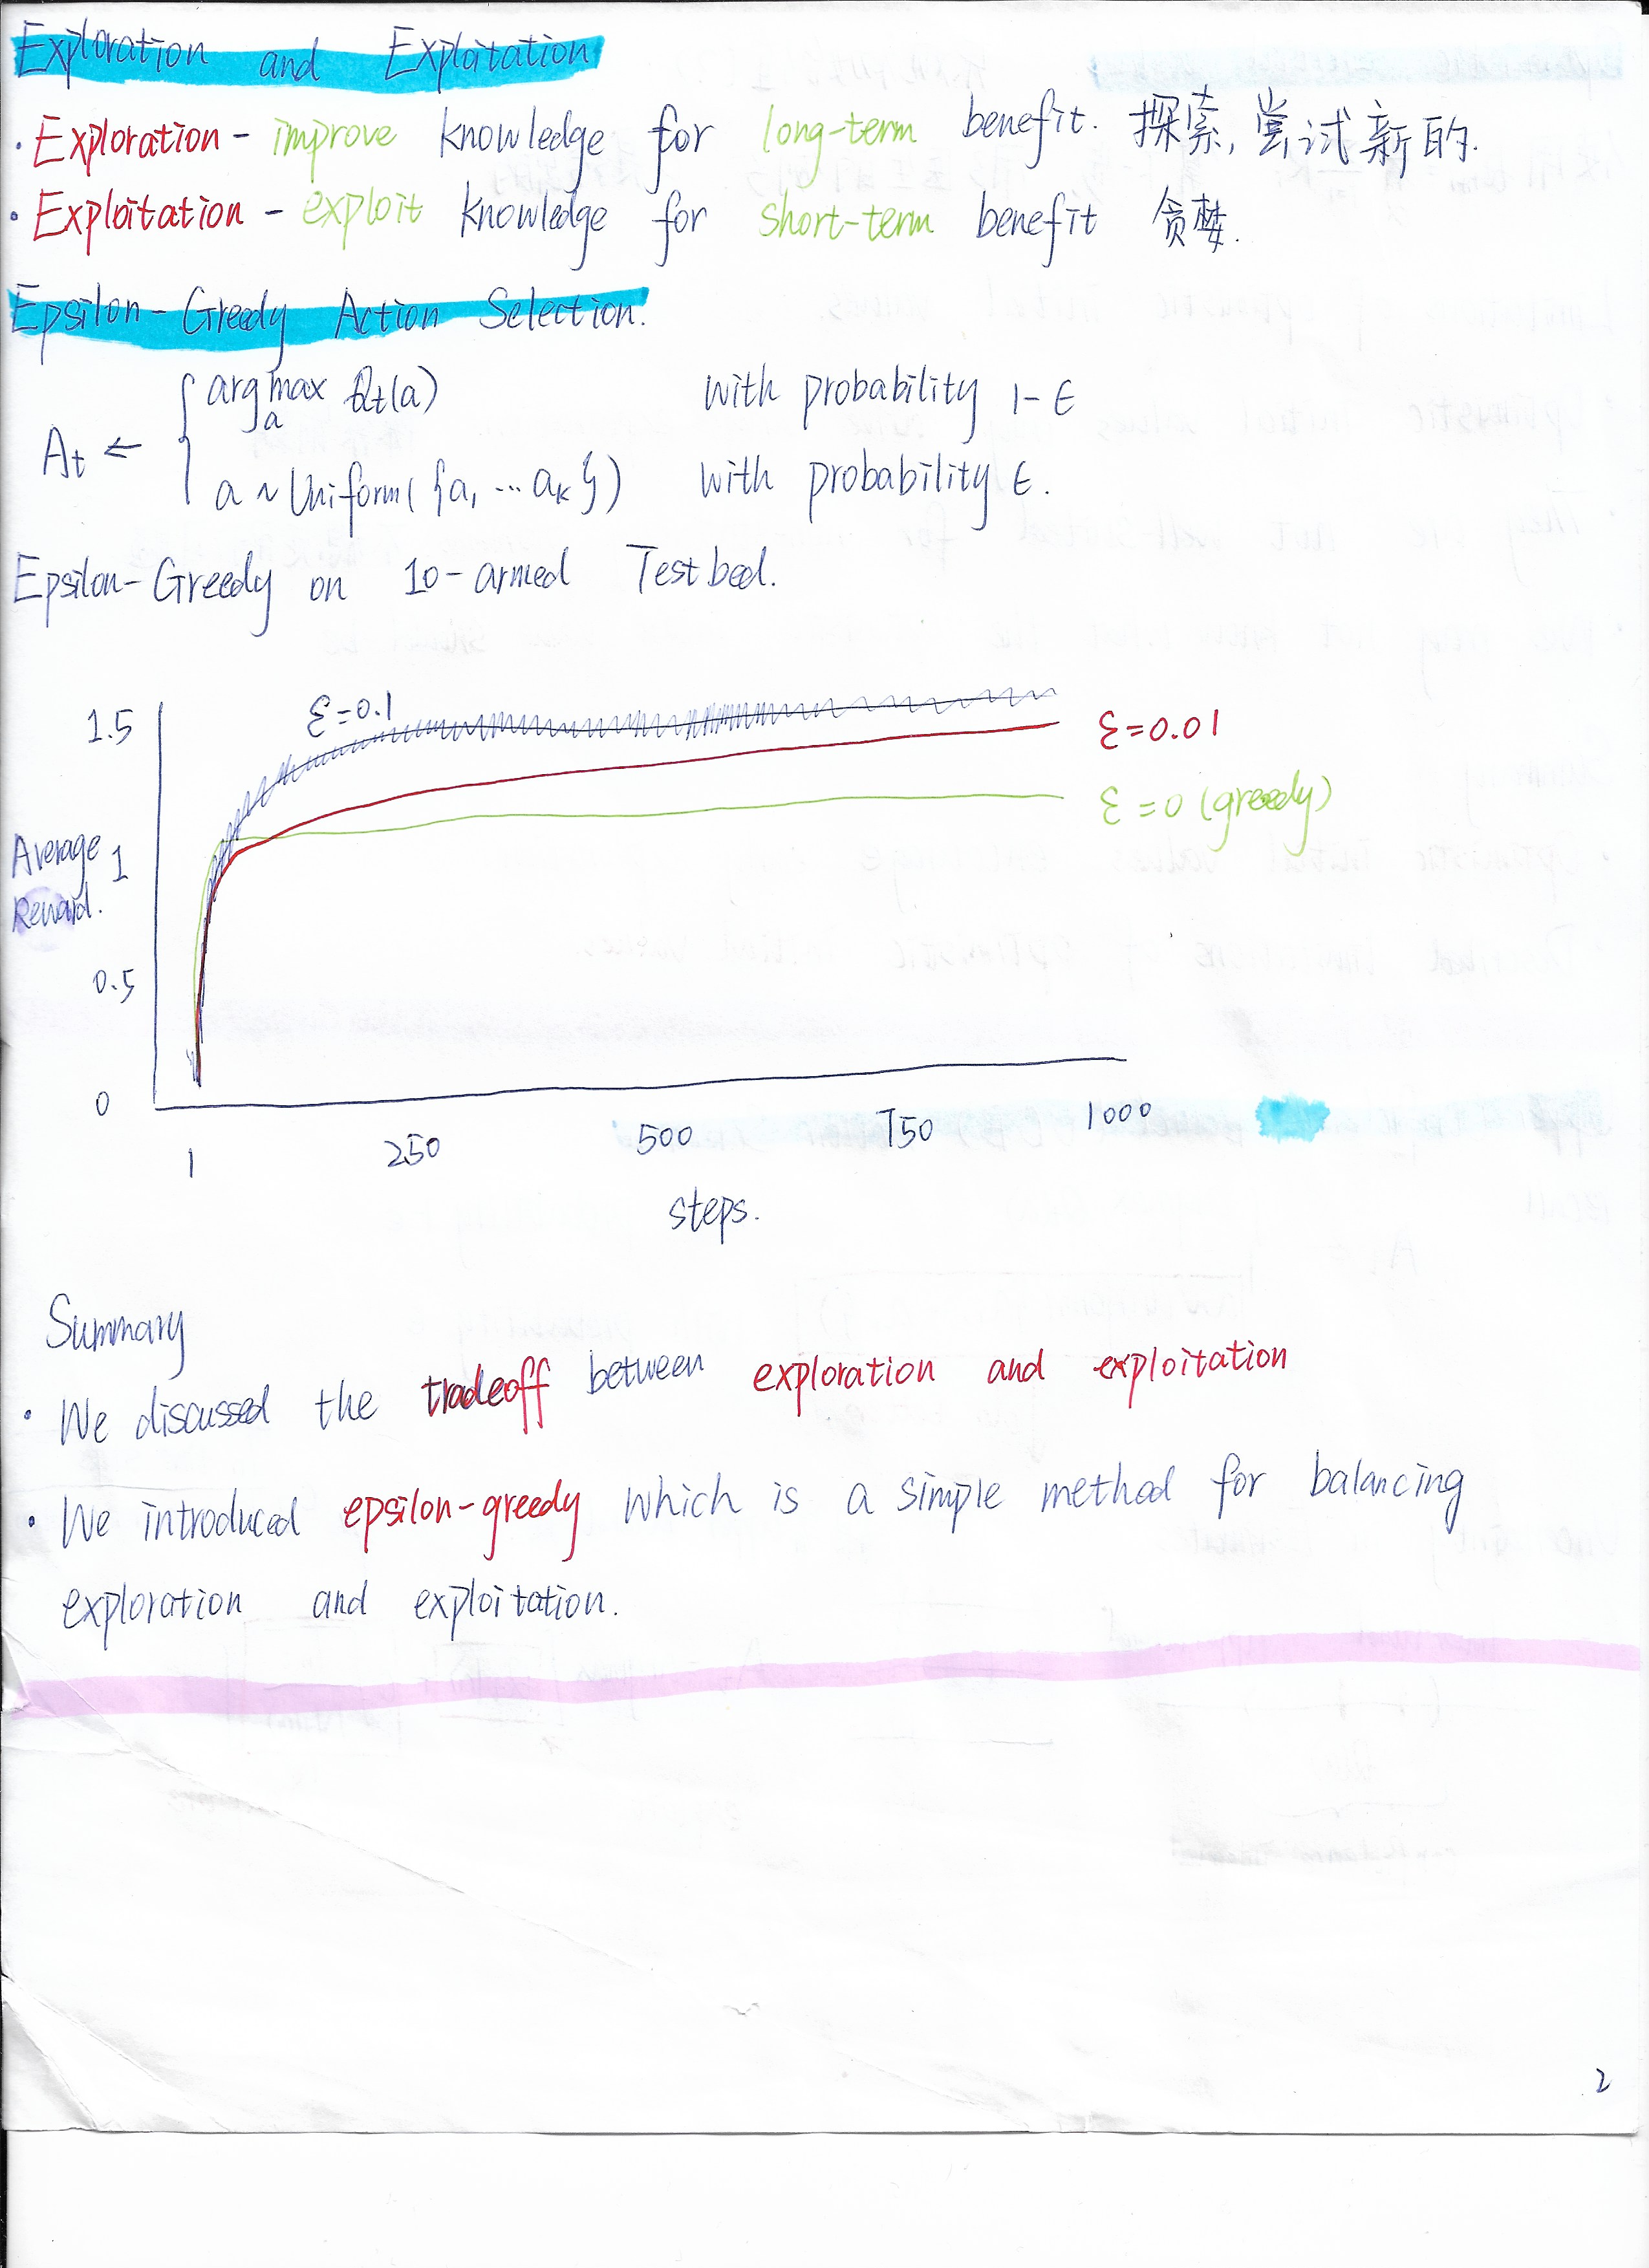 Exploration and Exploitation
· Exploration - improve knowledge for long-term benefit. 探索, 尝试新的.
· Exploitation - exploit knowledge for short-term benefit 贪婪.
Epsilon-Greedy Action Selection.
A_t ← { argmax_a Q_t(a) with probability 1-ϵ
a ~ Uniform({a_1 ... a_k}) with probability ϵ.
Epsilon-Greedy on 10-armed Testbed.
ε=0.1
1.5
ε=0.01
ε=0 (greedy)
Average
1
Reward.
0.5
0
1 250 500 750 1000
steps.
Summary
· We discussed the tradeoff between exploration and exploitation
· We introduced epsilon-greedy which is a simple method for balancing
exploration and exploitation.
2